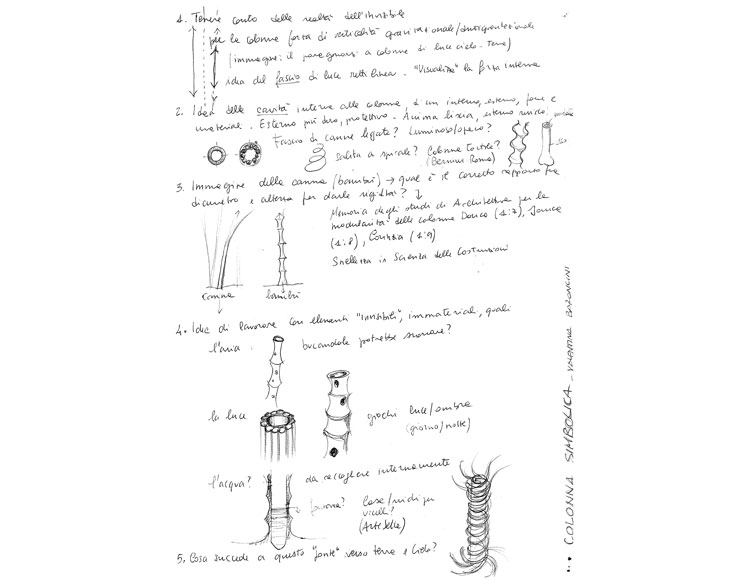 1. Tenere conto della realtà dell'invisibile
per la colonna forza di verticalità gravitazionale/antigravitazionale
(immagini: il paragonarsi a colonne di luce cielo-terra)
idea del fascio di luce rettilinea. "Visualizza" la forza interna
2. Idea della cavità interna alla colonna, di un interno, esterno, forma e
materiali. Esterno più duro, protettivo. Anima liscia, esterno ruvido,
Fascio di canne legate? Luminoso/opaco?
salita a spirale? Colonna Tortile?
(Bernini Roma)
3. Immagine della canna/(bambù) → qual è il corretto rapporto fra
diametro e altezza per darle rigidità?
Memoria degli studi di Architettura per la
modularità delle colonne Dorica (1:7), Ionica
(1:8), Corinzia (1:9)
Snellezza in Scienza delle Costruzioni
canna bambù
4. Idea di lavorare con elementi "invisibili", immateriali, quali
l'aria bucandole potrebbe suonare?
la luce giochi luce/ombra
(giorno/notte)
l'acqua? da raccogliere internamente
Case/nidi per
uccelli?
(Arte Sella)
5. Cosa succede a questo "ponte" verso terra e Cielo?
... COLONNA SIMBOLICA _ VALENTINA